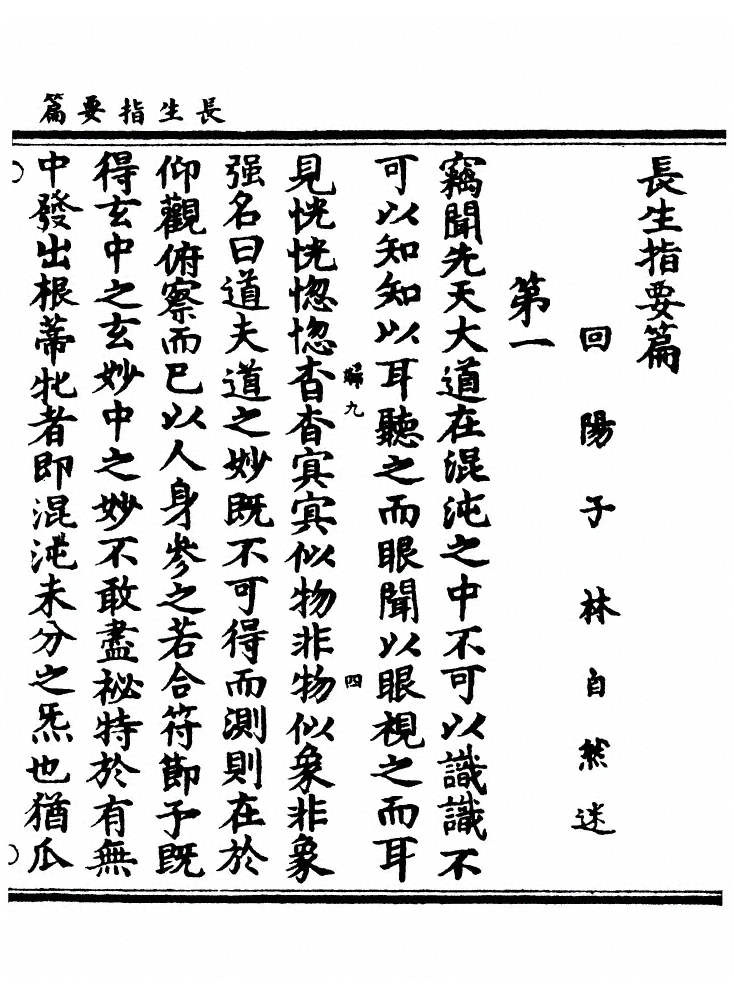 長生指要篇
長生指要篇
回陽子林自然述
第一
竊聞先天大道在混沌之中不可以識識不
可以知知以耳聽之而眼聞以眼視之而耳
見恍恍惚惚杳杳冥冥似物非物似象非象
歸九
四
强名曰道夫道之妙既不可得而測則在於
仰觀俯察而已以人身參之若合符節予既
得玄中之玄妙中之妙不敢盡祕特於有無
中發出根蒂牝者即混沌未分之炁也猶瓜